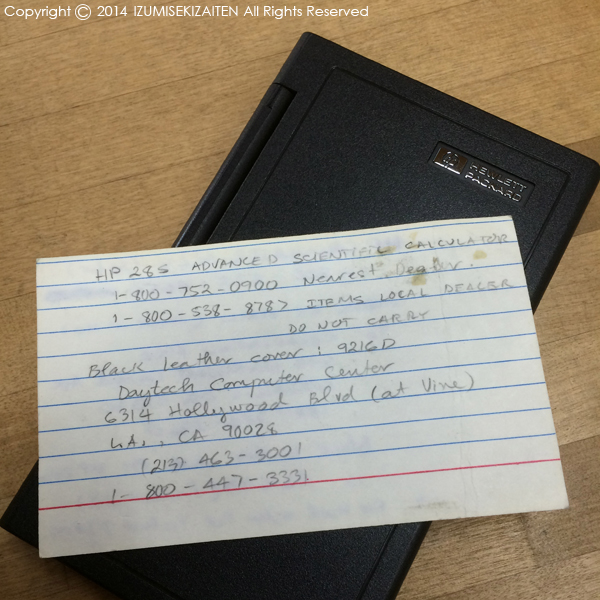 Copyright © 2014 IZUMISEKIZAITEN All Rights Reserved
HEWLETT
PACKARD
HP 28S ADVANCED SCIENTIFIC CALCULATOR
1-800-752-0900 Nearest Dealer.
1-800-538-8787 ITEMS LOCAL DEALER
DO NOT CARRY
Black leather cover: 9216D
Daytech Computer Center
6314 Hollywood Blvd (at Vine)
LA., CA 90028
(213) 463-3001
1-800-447-3331